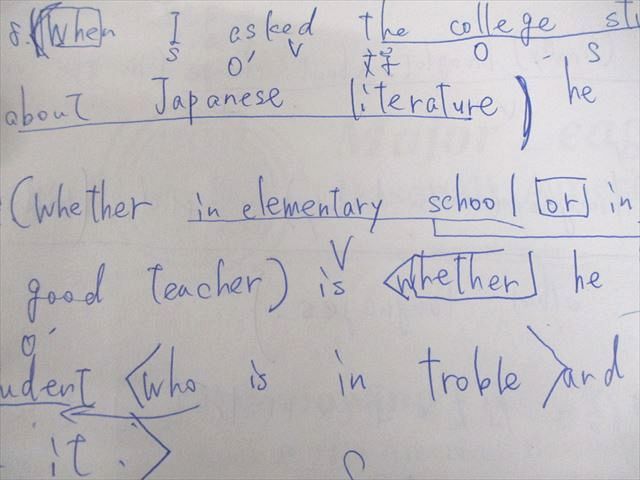 8. (When I asked the college stu
S O' V O S
about Japanese literature) he
(whether in elementary school or in
V
good teacher) is <whether he
O'
udent <who is in troble> and
it.>
S